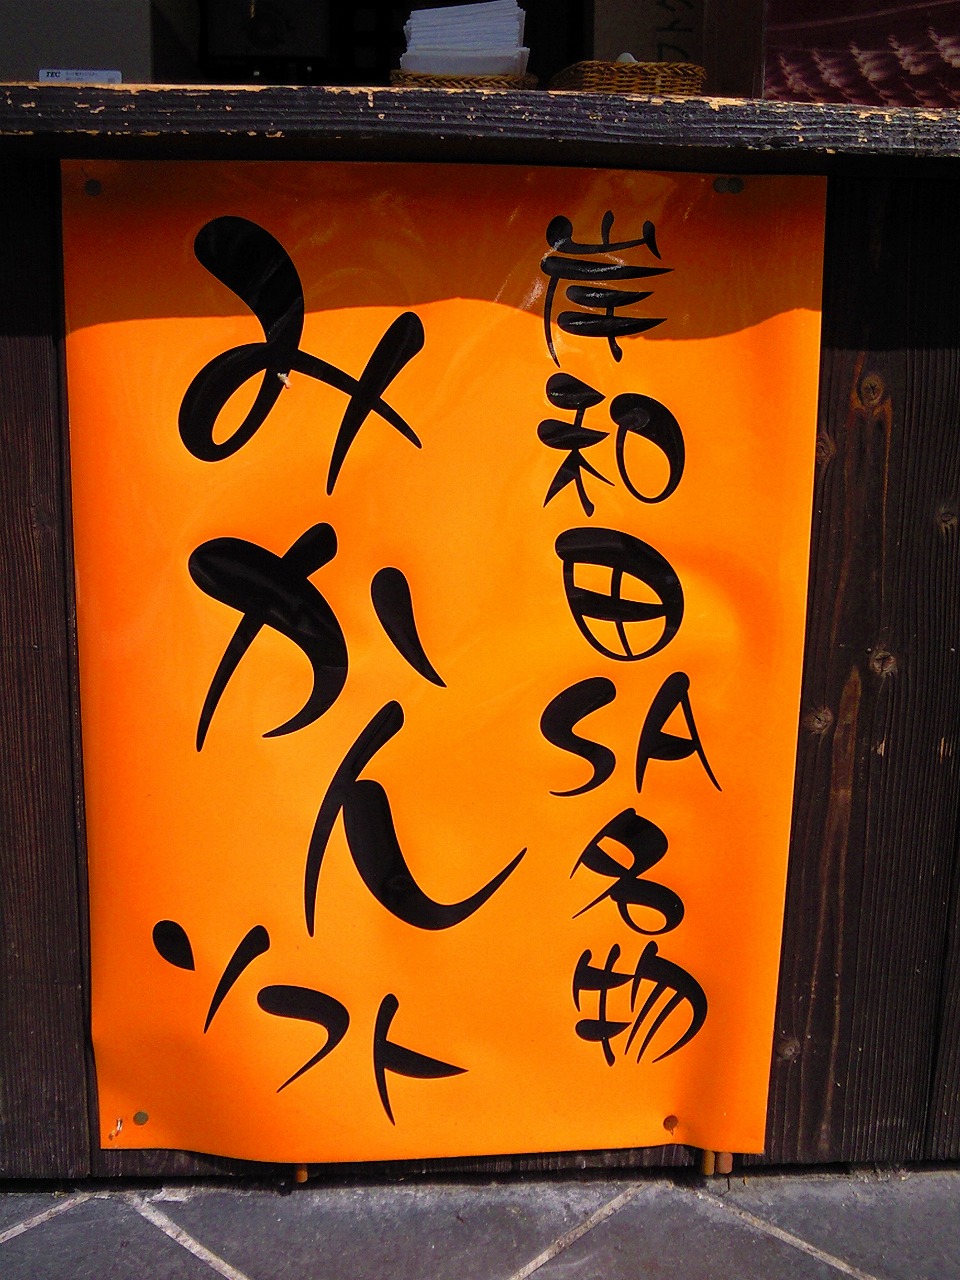 岸和田SA名物
みかん
ソフト
TEC